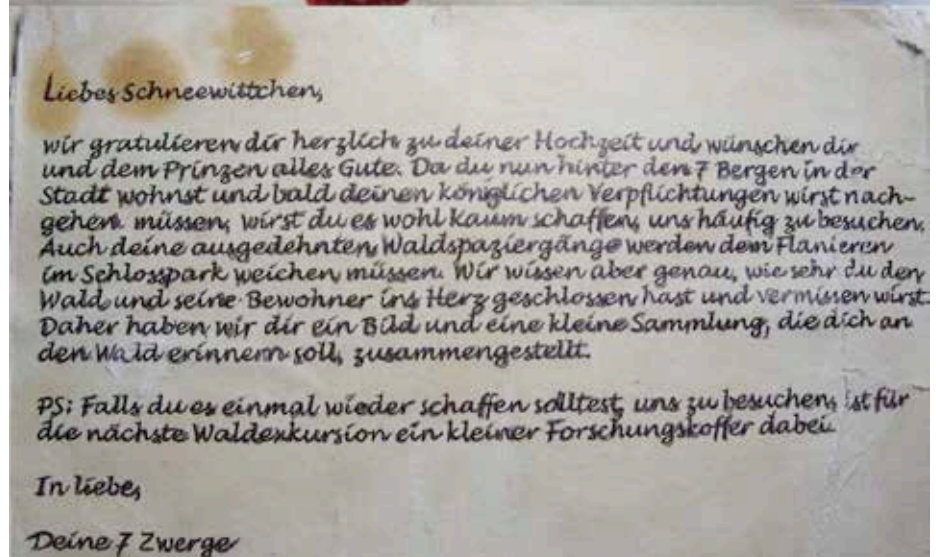 Liebes Schneewittchen,
wir gratulieren dir herzlich zu deiner Hochzeit und wünschen dir
und dem Prinzen alles Gute. Da du nun hinter den 7 Bergen in der
Stadt wohnst und bald deinen königlichen Verpflichtungen wirst nach-
gehen müssen, wirst du es wohl kaum schaffen, uns häufig zu besuchen.
Auch deine ausgedehnten Waldspaziergänge werden dem Flanieren
im Schlosspark weichen müssen. Wir wissen aber genau, wie sehr du den
Wald und seine Bewohner ins Herz geschlossen hast und vermissen wirst.
Daher haben wir dir ein Bild und eine kleine Sammlung, die dich an
den Wald erinnern soll, zusammengestellt.
PS: Falls du es einmal wieder schaffen solltest, uns zu besuchen, ist für
die nächste Waldexkursion ein kleiner Forschungskoffer dabei.
In liebe,
Deine 7 Zwerge